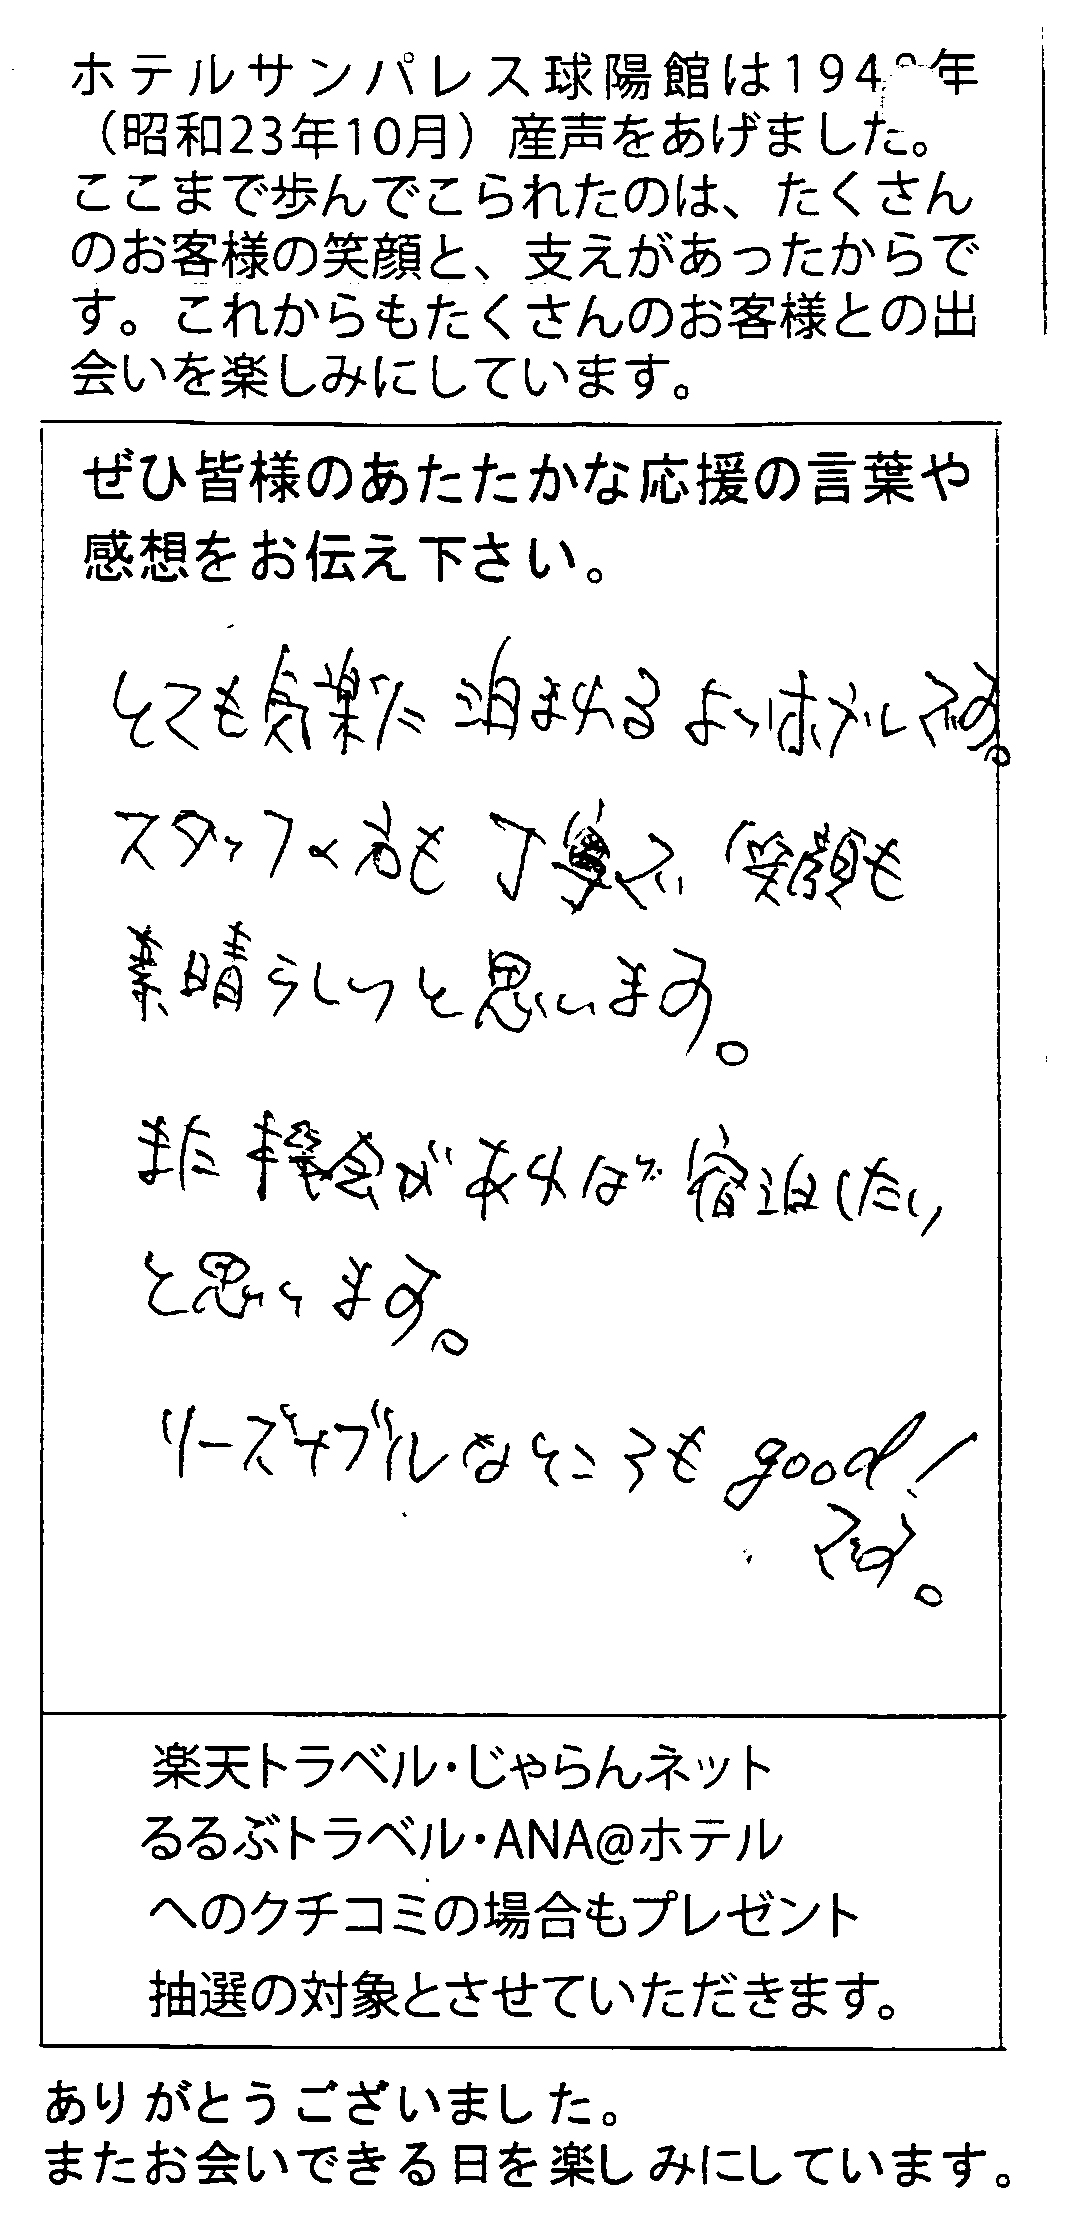 ホテルサンパレス球陽館は1948年
（昭和23年10月）産声をあげました。
ここまで歩んでこられたのは、たくさん
のお客様の笑顔と、支えがあったからで
す。これからもたくさんのお客様との出
会いを楽しみにしています。
ぜひ皆様のあたたかな応援の言葉や
感想をお伝え下さい。
とても気楽に泊まれるよいホテルです。
スタッフの方も丁寧で、笑顔も
素晴らしいと思います。
また機会があれば宿泊したい
と思います。
リーズナブルなところもgood!
です。
楽天トラベル・じゃらんネット
るるぶトラベル・ANA@ホテル
へのクチコミの場合もプレゼント
抽選の対象とさせていただきます。
ありがとうございました。
またお会いできる日を楽しみにしています。